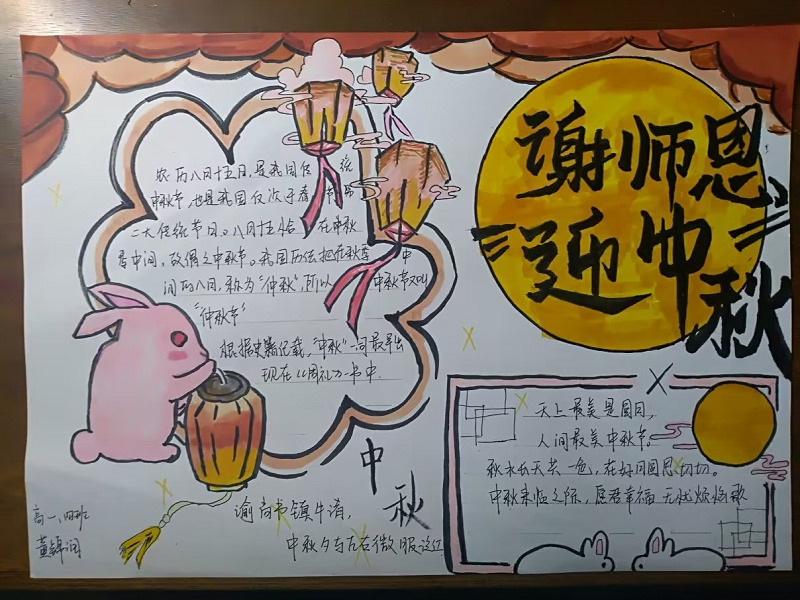 谢师恩
迎中秋
农历八月十五日,是我国传统
中秋节,也是我国仅次于春节第
二大传统节日。八月十五恰在中秋
是中间,故偶之中秋节。我国历法把在秋季中
间的八月,称为“仲秋”,所以中秋节又叫
“仲秋节”
根据史籍记载,“中秋”一词最早出
现在《周礼》一书中
中秋
谕尚书镇牛渚,
中秋夕与左右微服泛江
天上最美是圆月,
人间最美中秋节。
秋水长天共一色,在好月圆思切切。
中秋来临之际,愿君幸福无忧烦恼歇
高一、四班